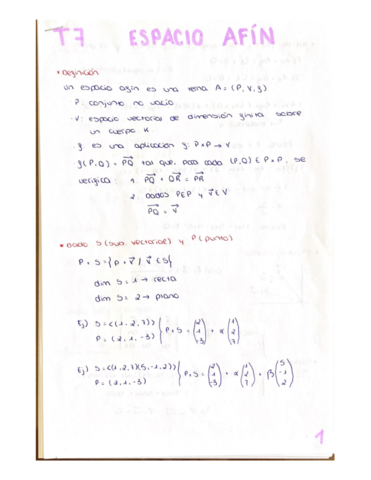 T7 ESPACIO AFÍN
• Definición
un espacio afín es una terna A = (P, V, f)
P. conjunto no vacío
• V: espacio vectorial de dimensión finita sobre
un cuerpo K.
• f es una aplicación f: P×P → V
f(P,Q) = PQ tal que, para cada (P,Q) ∈ P×P, se
verifica: 1. PQ + QR = PR
2. Dados P∈P y v∈V
PQ = v
• Dado S (sub. vectorial) y P (punto)
P + S = {P + v / v ∈ S}
dim S = 1 → recta
dim S = 2 → plano
Ej) S = <(1, 2, 7)> } P+S = (2 1 -3) + α (1 2 7)
P = (2, 1, -3)
Ej) S = <(1, 2, 7)(5, -1, 2)> } P+S = (2 1 -3) + α (1 2 7) + β (5 -1 2)
P = (2, 1, -3)
1